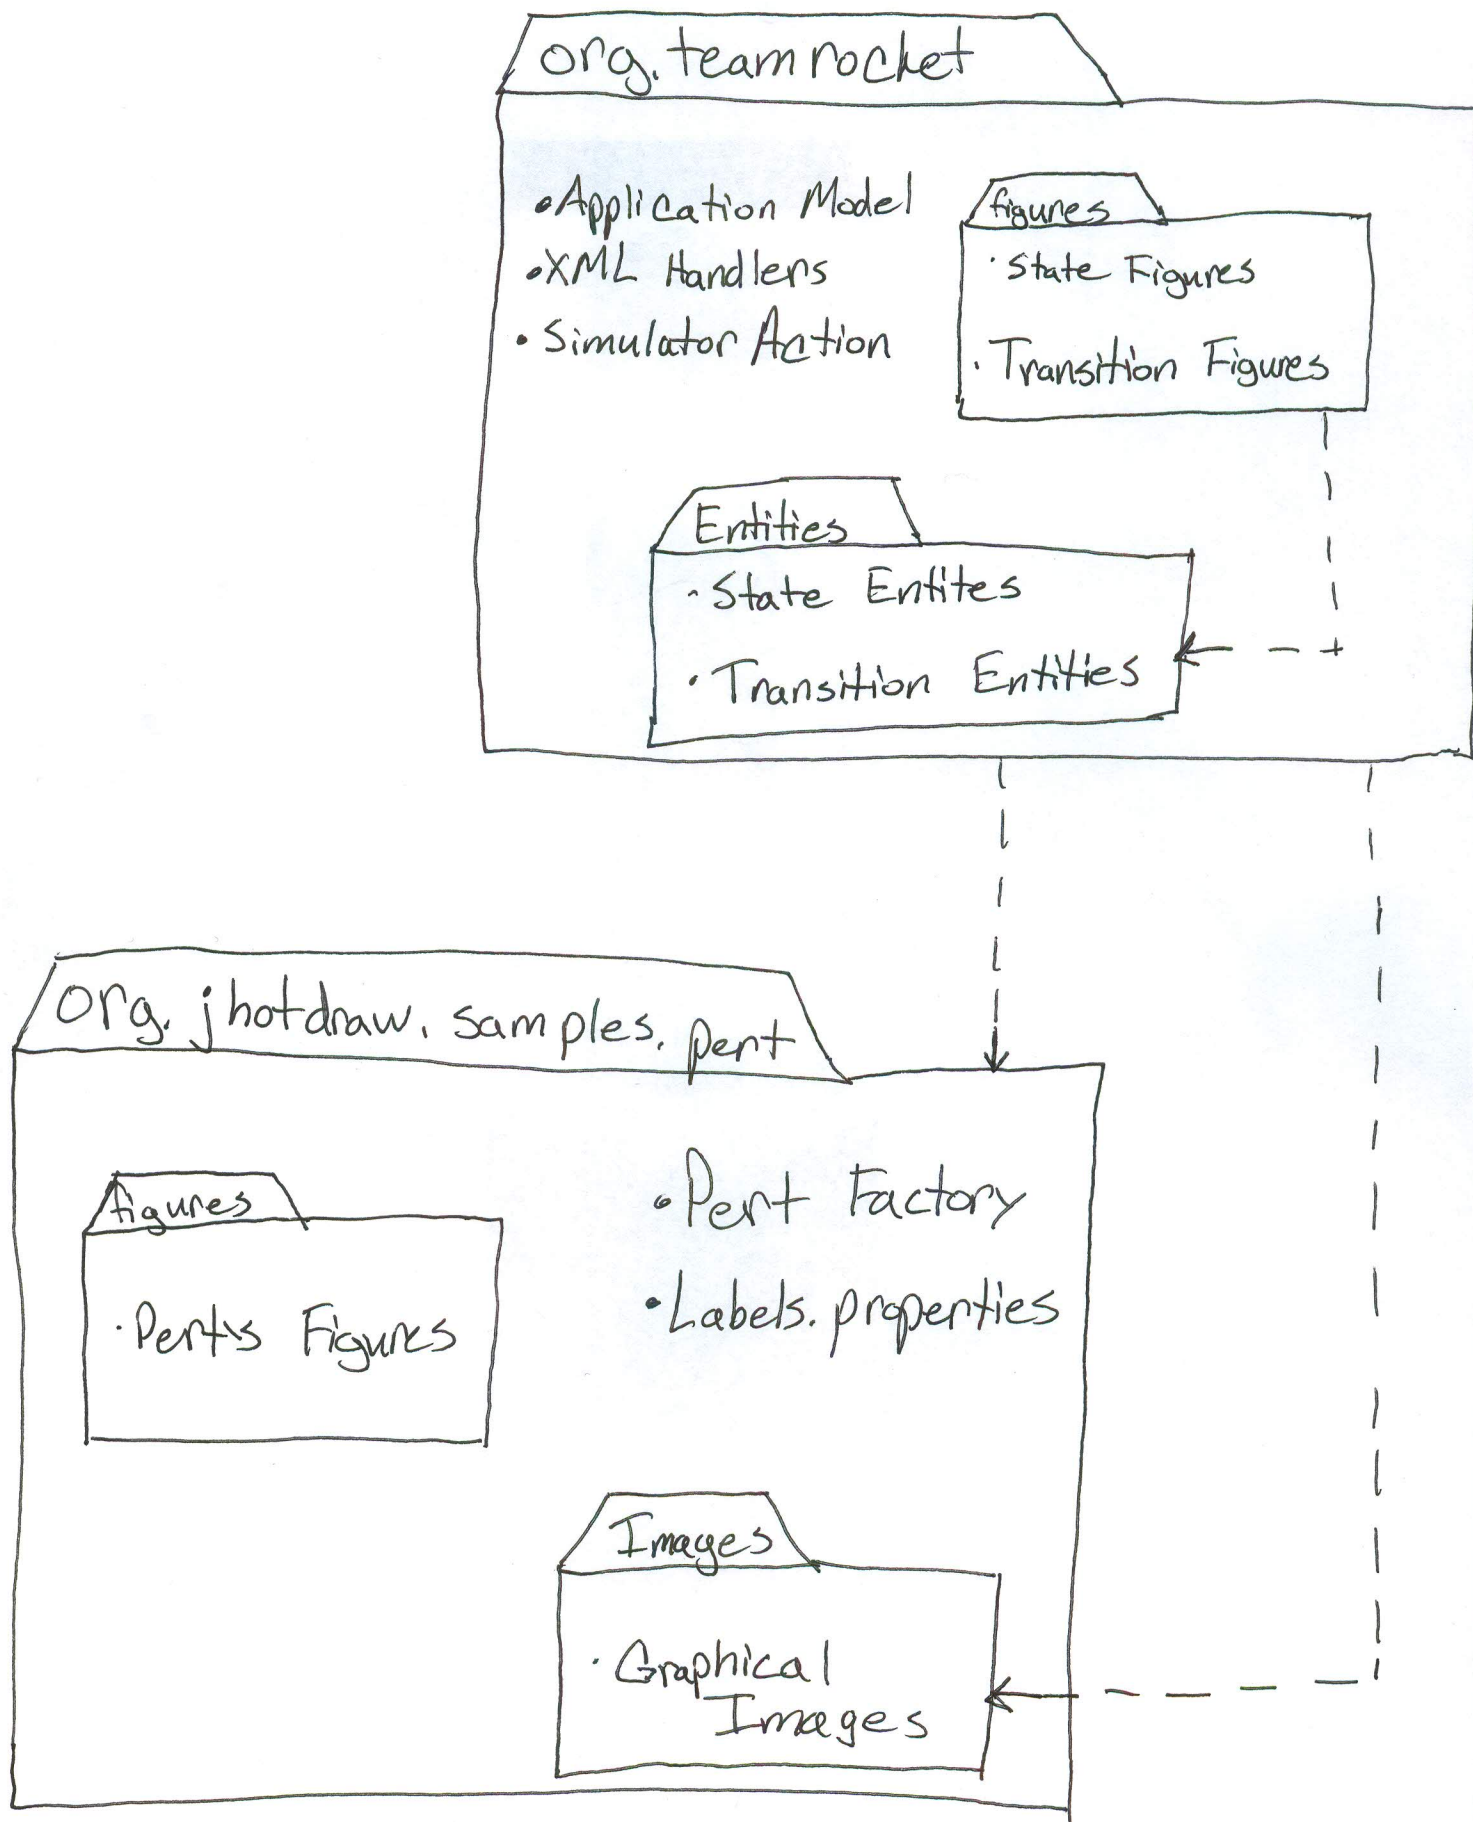 org.teamrocket
•Application Model
•XML Handlers
•Simulator Action
figures
·State Figures
·Transition Figures
Entities
·State Entites
·Transition Entities
org.jhotdraw.samples.pert
figures
·Perts Figures
•Pert Factory
•Labels.properties
Images
·Graphical
Images